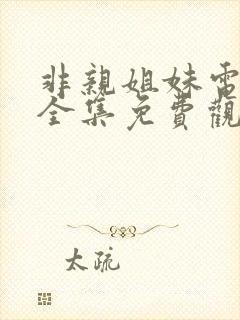 非親姐妹電
全集免費觀
太疏